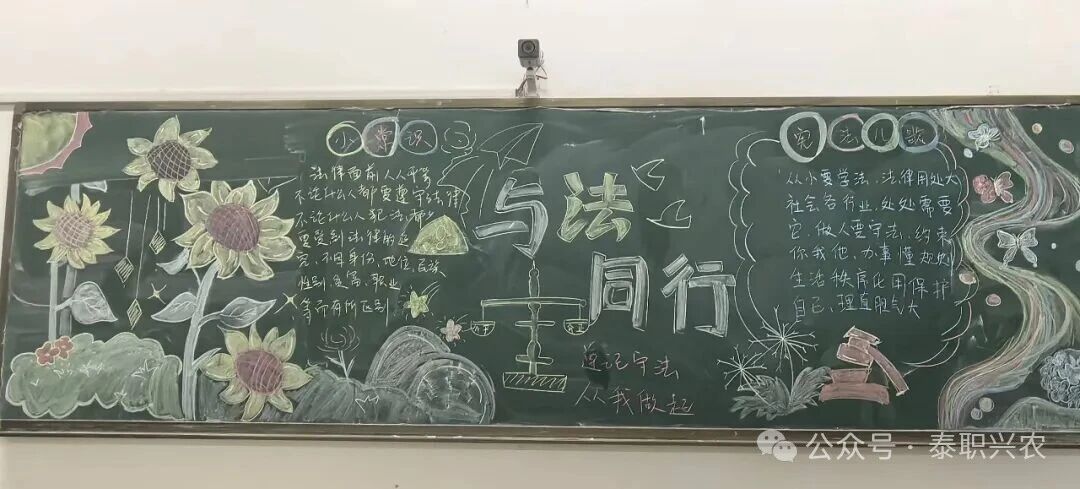 小常识
法律面前人人平等
不论什么人都要遵守法律
不论什么人犯法都
要受到法律的追
究,不因身份、地位、民族
性别、贫富、职业
等而有所区别
与法
同行
公
正
遵纪守法
从我做起
宪法儿歌
从小要学法,法律用处大
社会各行业,处处需要
它,做人要守法,约束
你我他,办事懂规则
生活秩序化,用保护
自己,理直胆气大
公众号·泰职兴农